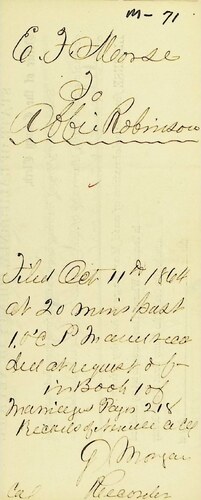 M - 71
E. F. Morse
To
Abbie Robinson
Filed Oct 11th 1864
at 20 mins past
1 O'c P M and reco
ded at request of
in Book 1 of
Marriages Page 218
Records of
G Morgan
Recorder